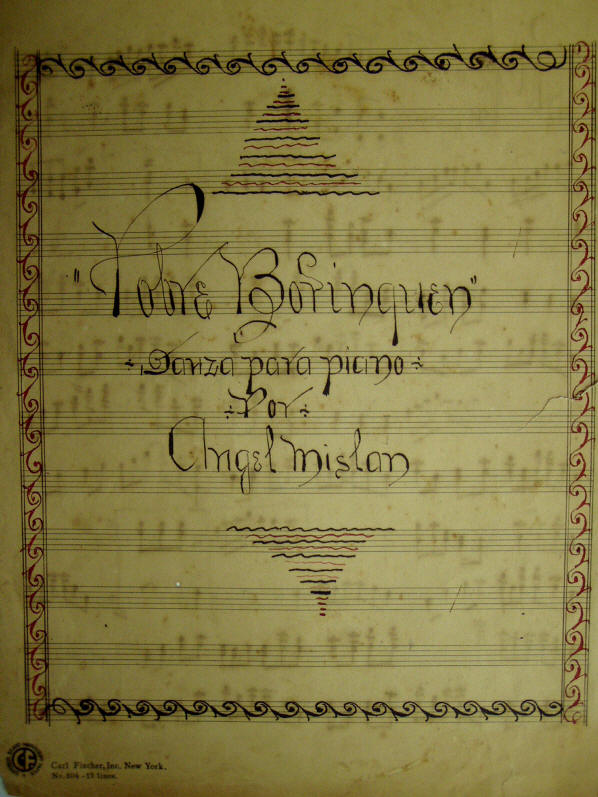 "Pobre Borinquen"
Danza para piano
Por
Angel Mislan
CF
Carl Fischer, Inc. New York.
No. 104 - 12 lines.